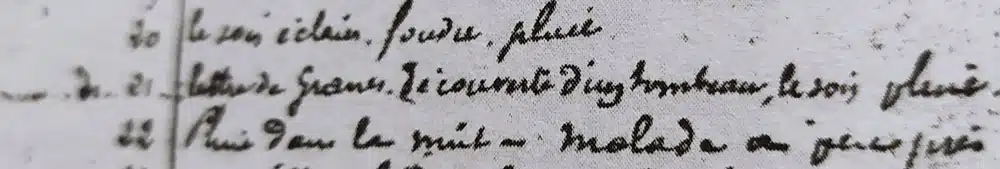 20 le soir éclair, foudre, pluie
D. 21 lettre de Graves. Découverte d'un tombeau, le soir pluie
22 Pluie dans la nuit – malade a peu près